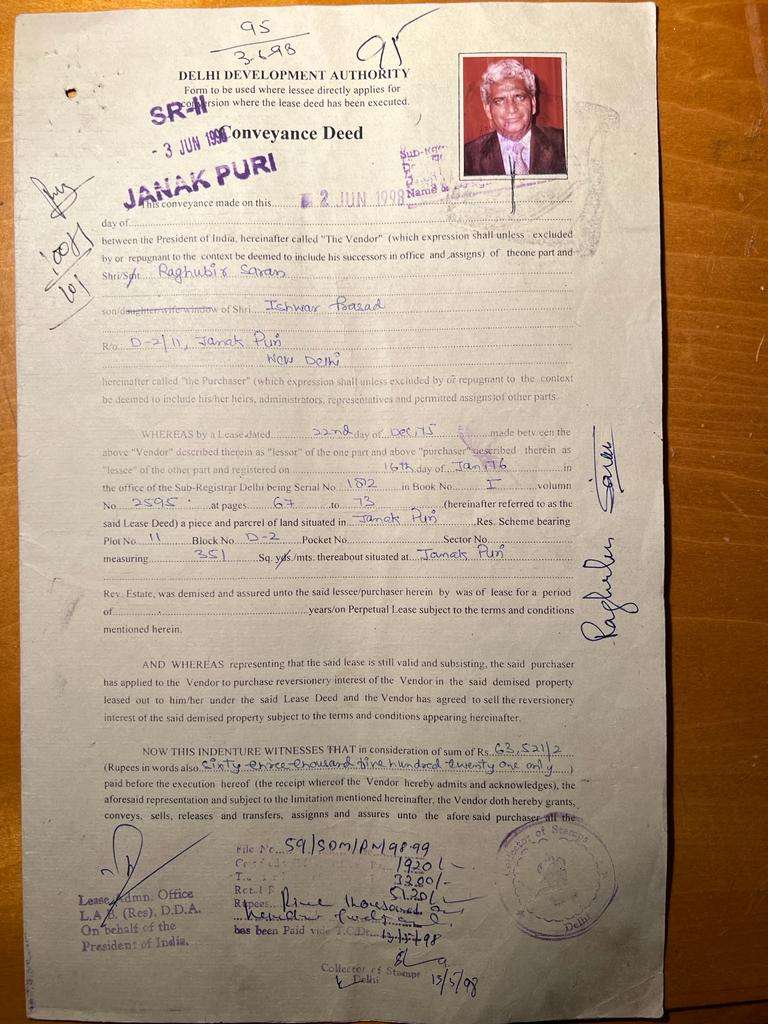 95
3.6.98
95
DELHI DEVELOPMENT AUTHORITY
Form to be used where lessee directly applies for
conversion where the lease deed has been executed.
SR-II
- 3 JUN 1998
JANAK PURI
Conveyance Deed
This conveyance made on this 2 JUN 1998
day of
between the President of India, hereinafter called "The Vendor" (which expression shall unless excluded
by or repugnant to the context be deemed to include his successors in office and assigns) of theone part and
Shri/Smt. Raghubir Saran
son/daughter/wife/window of Shri Ishwar Prasad
R/o D-2/11, Janak Puri
New Delhi
hereinafter called "the Purchaser" (which expression shall unless excluded by or repugnant to the context
be deemed to include his/her heirs, administrators, representatives and permitted assigns)of other parts.
WHEREAS by a Lease dated 22nd day of Dec 75 made between the
above "Vendor" described therein as "lessor" of the one part and above "purchaser" described therein as
"lessee" of the other part and registered on 16th day of Jan 76 in
the office of the Sub-Registrar Delhi being Serial No 1812 in Book No I volumn
No 2595 at pages 67 to 73 (hereinafter referred to as the
said Lease Deed) a piece and parcrel of land situated in Janak Puri Res. Scheme bearing
Plot No 11 Block No D-2 Pocket No Sector No
measuring 351 Sq. yds./mts. thereabout situated at Janak Puri
Rev. Estate, was demised and assured unto the said lessee/purchaser herein by was of lease for a period
of years/on Perpetual Lease subject to the terms and conditions
mentioned herein.
Raghubir Saran
AND WHEREAS representing that the said lease is still valid and subsisting, the said purchaser
has applied to the Vendor to purchase reversionery interest of the Vendor in the said demised property
leased out to him/her under the said Lease Deed and the Vendor has agreed to sell the reversionery
interest of the said demised property subject to the terms and conditions appearing hereinafter.
NOW THIS INDENTURE WITNESSES THAT in consideration of sum of Rs. 63,521/2
(Rupees in words also Sixty three thousand five hundred twenty one only)
paid before the execution hereof (the receipt whereof the Vendor hereby admits and acknowledges), the
aforesaid representation and subject to the limitation mentioned hereinafter, the Vendor doth hereby grants,
conveys, sells, releases and transfers, assignns and assures unto the afore said purchaser all the
File No. 59/SDM/PN/98-99
1920/-
3200/-
5120/-
Rupees Five thousand one
hundred twenty only
has been Paid vide T.C.Dt. 13/5/98
Collector of Stamps
Delhi
15/5/98
Lease Admn. Office
L.A.B. (Res). D.D.A.
On behalf of the
President of India.
Collector of Stamps
Delhi